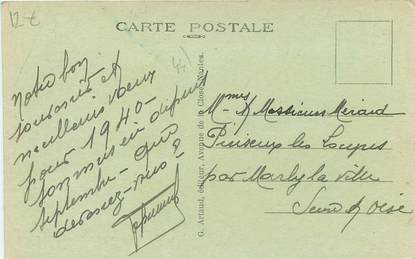 12-€
CARTE POSTALE
44)
Notre bon
souvenir et
meilleurs vœux
pour 1940 -
sommes ici depuis
septembre - que
devenez-vous ?
G. Artaud, éditeur, Avenue de la Close, Nantes.
Mmes & Messieurs
Puiseux les Louvres
par Marly la Ville
Seine & Oise